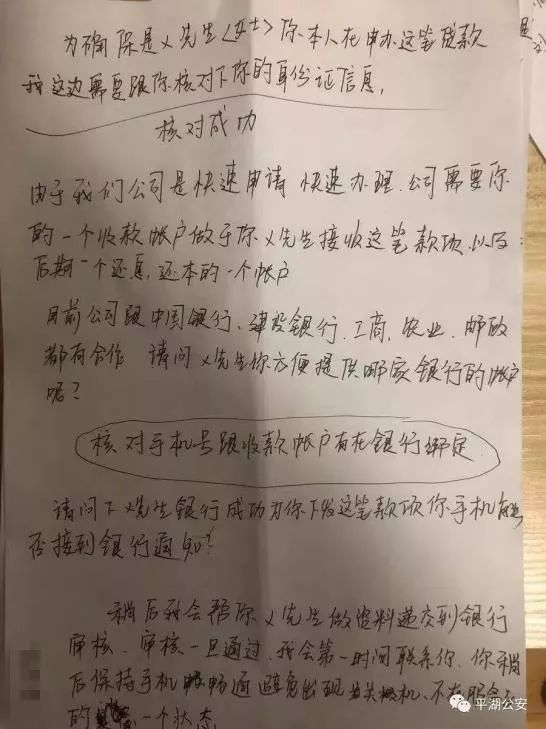 为确保是X先生<女士>你本人在申办这笔贷款
我这边需要跟你核对下你的身份证信息,
核对成功
由于我们公司是快速申请 快速办理.公司需要你
的一个收款帐户做于你X先生接收这笔款项以及
后期一个还息,还本的一个帐户
目前公司跟中国银行、建设银行、工商,农业、邮政
都有合作 请问X先生你方便提供哪家银行的帐户
呢?
核对手机号跟收款帐户有在银行绑定
请问下X先生银行成功为你下发这笔款项你手机
否接到银行通知?
稍后我会帮你X先生做资料递交到银行
审核、审核一旦通过,我会第一时间联系你、你稍
后保持手机畅通避免出现关机、不在服务
的一个状态
平湖公安